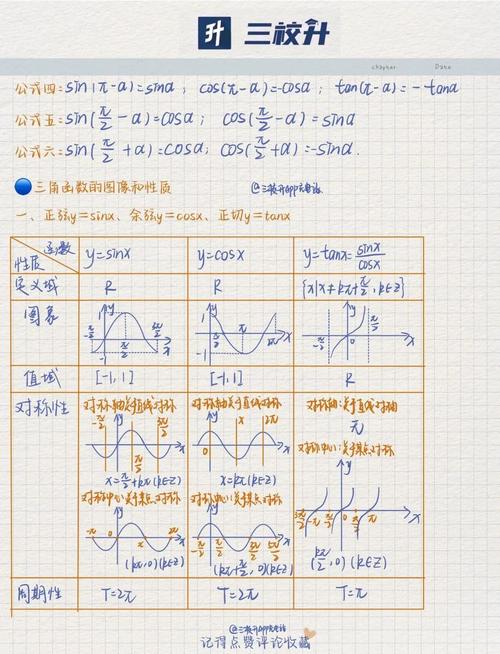 升 三校升
chapter Date
公式四:sin(π-α)=sinα; cos(π-α)=-cosα; tan(π-α)=-tanα
公式五:sin(π/2-α)=cosα; cos(π/2-α)=sinα
公式六:sin(π/2+α)=cosα; cos(π/2+α)=-sinα.
三角函数的图像和性质
@三校升App
一、正弦y=sinx、余弦y=cosx、正切y=tanx
函数
性质
y=sinx
y=cosx
y=tanx=sinx/cosx
定义域
R
R
{x|x≠kπ+π/2,k∈Z}
图象
y
1
-1
-π/2
π/2
3π/2
x
y
1
-1
π
2π
x
y
-π/2
0
π/2
x
值域
[-1,1]
[-1,1]
R
对称性
对称轴关于直线对称
-π/2
y
π/2
3π/2
x
x=π/2+kπ(k∈Z)
对称中心:关于某点对称
-π
y
0
π
2π
x
(kπ,0)(k∈Z)
对称轴关于直线对称
y
0
π
2π
x
x=kπ(k∈Z)
对称中心关于某点对称
y
-π/2
π/2
3π/2
5π/2
x
(kπ+π/2,0)(k∈Z)
对称轴:关于直线对轴
无
对称中心:关于某点对称
y
-π
-π/2
0
π/2
π
x
(kπ/2,0)(k∈Z)
周期性
T=2π
T=2π
T=π
@三校升App
记得点赞评论收藏